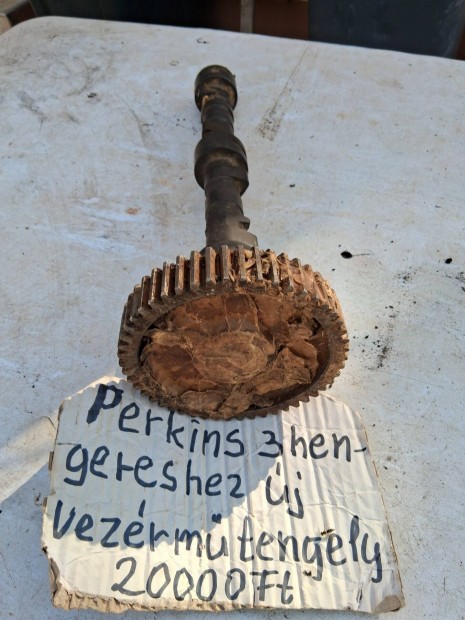 Perkins 3hen-
gereshez új
vezérműtengely
20000Ft